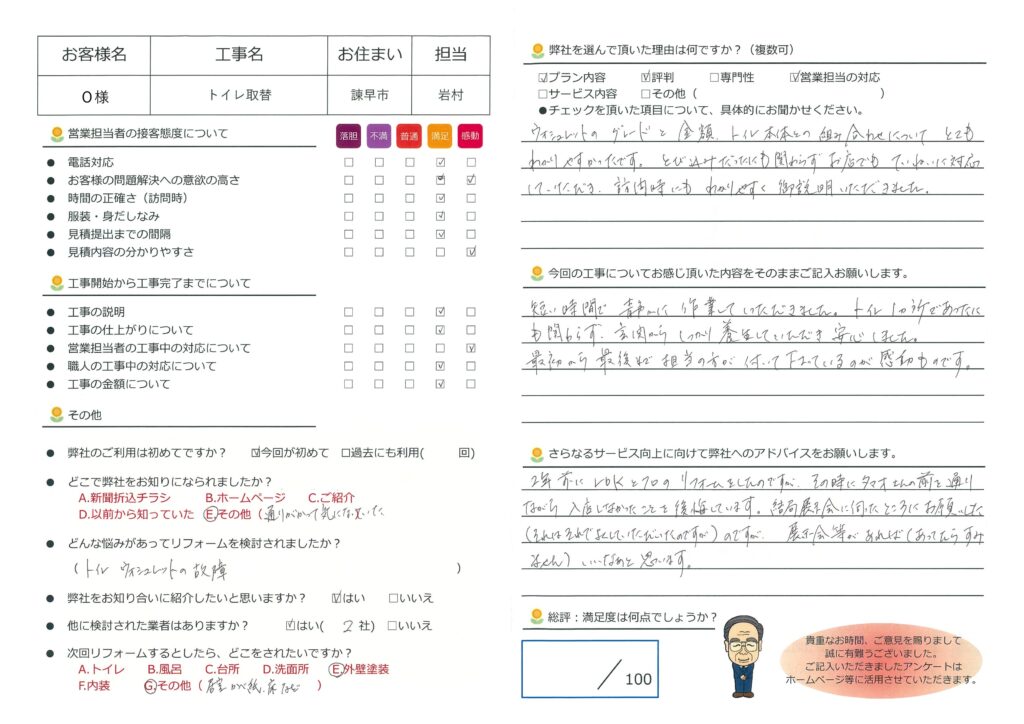 お客様名 工事名 お住まい 担当
O様 トイレ取替 諫早市 岩村
営業担当者の接客態度について 落胆 不満 普通 満足 感動
● 電話対応 □ □ □ ☑ □
● お客様の問題解決への意欲の高さ □ □ □ ☑ ☑
● 時間の正確さ（訪問時） □ □ □ ☑ □
● 服装・身だしなみ □ □ □ ☑ □
● 見積提出までの間隔 □ □ □ ☑ □
● 見積内容の分かりやすさ □ □ □ □ ☑
工事開始から工事完了までについて
● 工事の説明 □ □ □ ☑ □
● 工事の仕上がりについて □ □ □ ☑ □
● 営業担当者の工事中の対応について □ □ □ □ ☑
● 職人の工事中の対応について □ □ □ ☑ □
● 工事の金額について □ □ □ ☑ □
その他
● 弊社のご利用は初めてですか？ ☑今回が初めて □過去にも利用( 回)
● どこで弊社をお知りになられましたか？
A.新聞折込チラシ B.ホームページ C.ご紹介
D.以前から知っていた E.その他（通りがかって気になっていた
● どんな悩みがあってリフォームを検討されましたか？
（トイレ ウォシュレットの故障 ）
● 弊社をお知り合いに紹介したいと思いますか？ ☑はい □いいえ
● 他に検討された業者はありますか？ ☑はい( 2 社) □いいえ
● 次回リフォームするとしたら、どこをされたいですか？
A.トイレ B.風呂 C.台所 D.洗面所 E.外壁塗装
F.内装 G.その他（居室 かべ紙、床など ）
弊社を選んで頂いた理由は何ですか？（複数可）
☑プラン内容 ☑評判 □専門性 ☑営業担当の対応
□サービス内容 □その他（ ）
●チェックを頂いた項目について、具体的にお聞かせください。
ウォシュレットのグレードと金額、トイレ本体との組み合わせについて とても
わかりやすかったです。とび込みだったにも関わらず お店でも ていねいに対応
していただき、訪問時にも わかりやすく御説明いただきました。
今回の工事についてお感じ頂いた内容をそのままご記入お願いします。
短い時間で 静かに 作業していただきました。トイレ1カ所であったに
も関わらず、玄関から しっかり養生していただき 安心しました。
最初から最後まで 担当の方が 付いて下さっているのが 感動ものです。
さらなるサービス向上に向けて弊社へのアドバイスをお願いします。
2年前に LDKとフロのリフォームをしたのですが、その時にタマオさんの前を通り
ながら 入店しなかったことを後悔しています。結局展示会に伺ったところにお願いした
（それはそれで良くしていただいたのですが）のですが、展示会等があれば（あったらすみ
ません）いいなあと思います。
総評：満足度は何点でしょうか？
／100
貴重なお時間、ご意見を賜りまして
誠に有難うございました。
ご記入いただきましたアンケートは
ホームページ等に活用させていただきます。